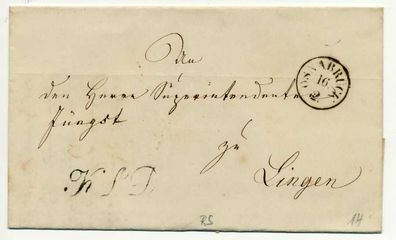 An
OSNABRÜCK
16
2
den Herrn Superintendenten
Jüngst
zu
K S D
Lingen
RS
14